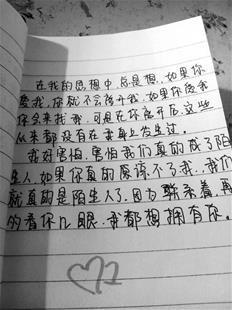 在我的思想中总是想,如果你
爱我,你就不会离开我,如果你爱我
你会来找我,可是在你离开后,这些
从来都没有在我身上发生过。
我好害怕,害怕我们真的成了陌
生人,如果你真的原谅不了我,我们
就真的是陌生人了,因为联系着,再
的看你几眼,我都想拥有你。